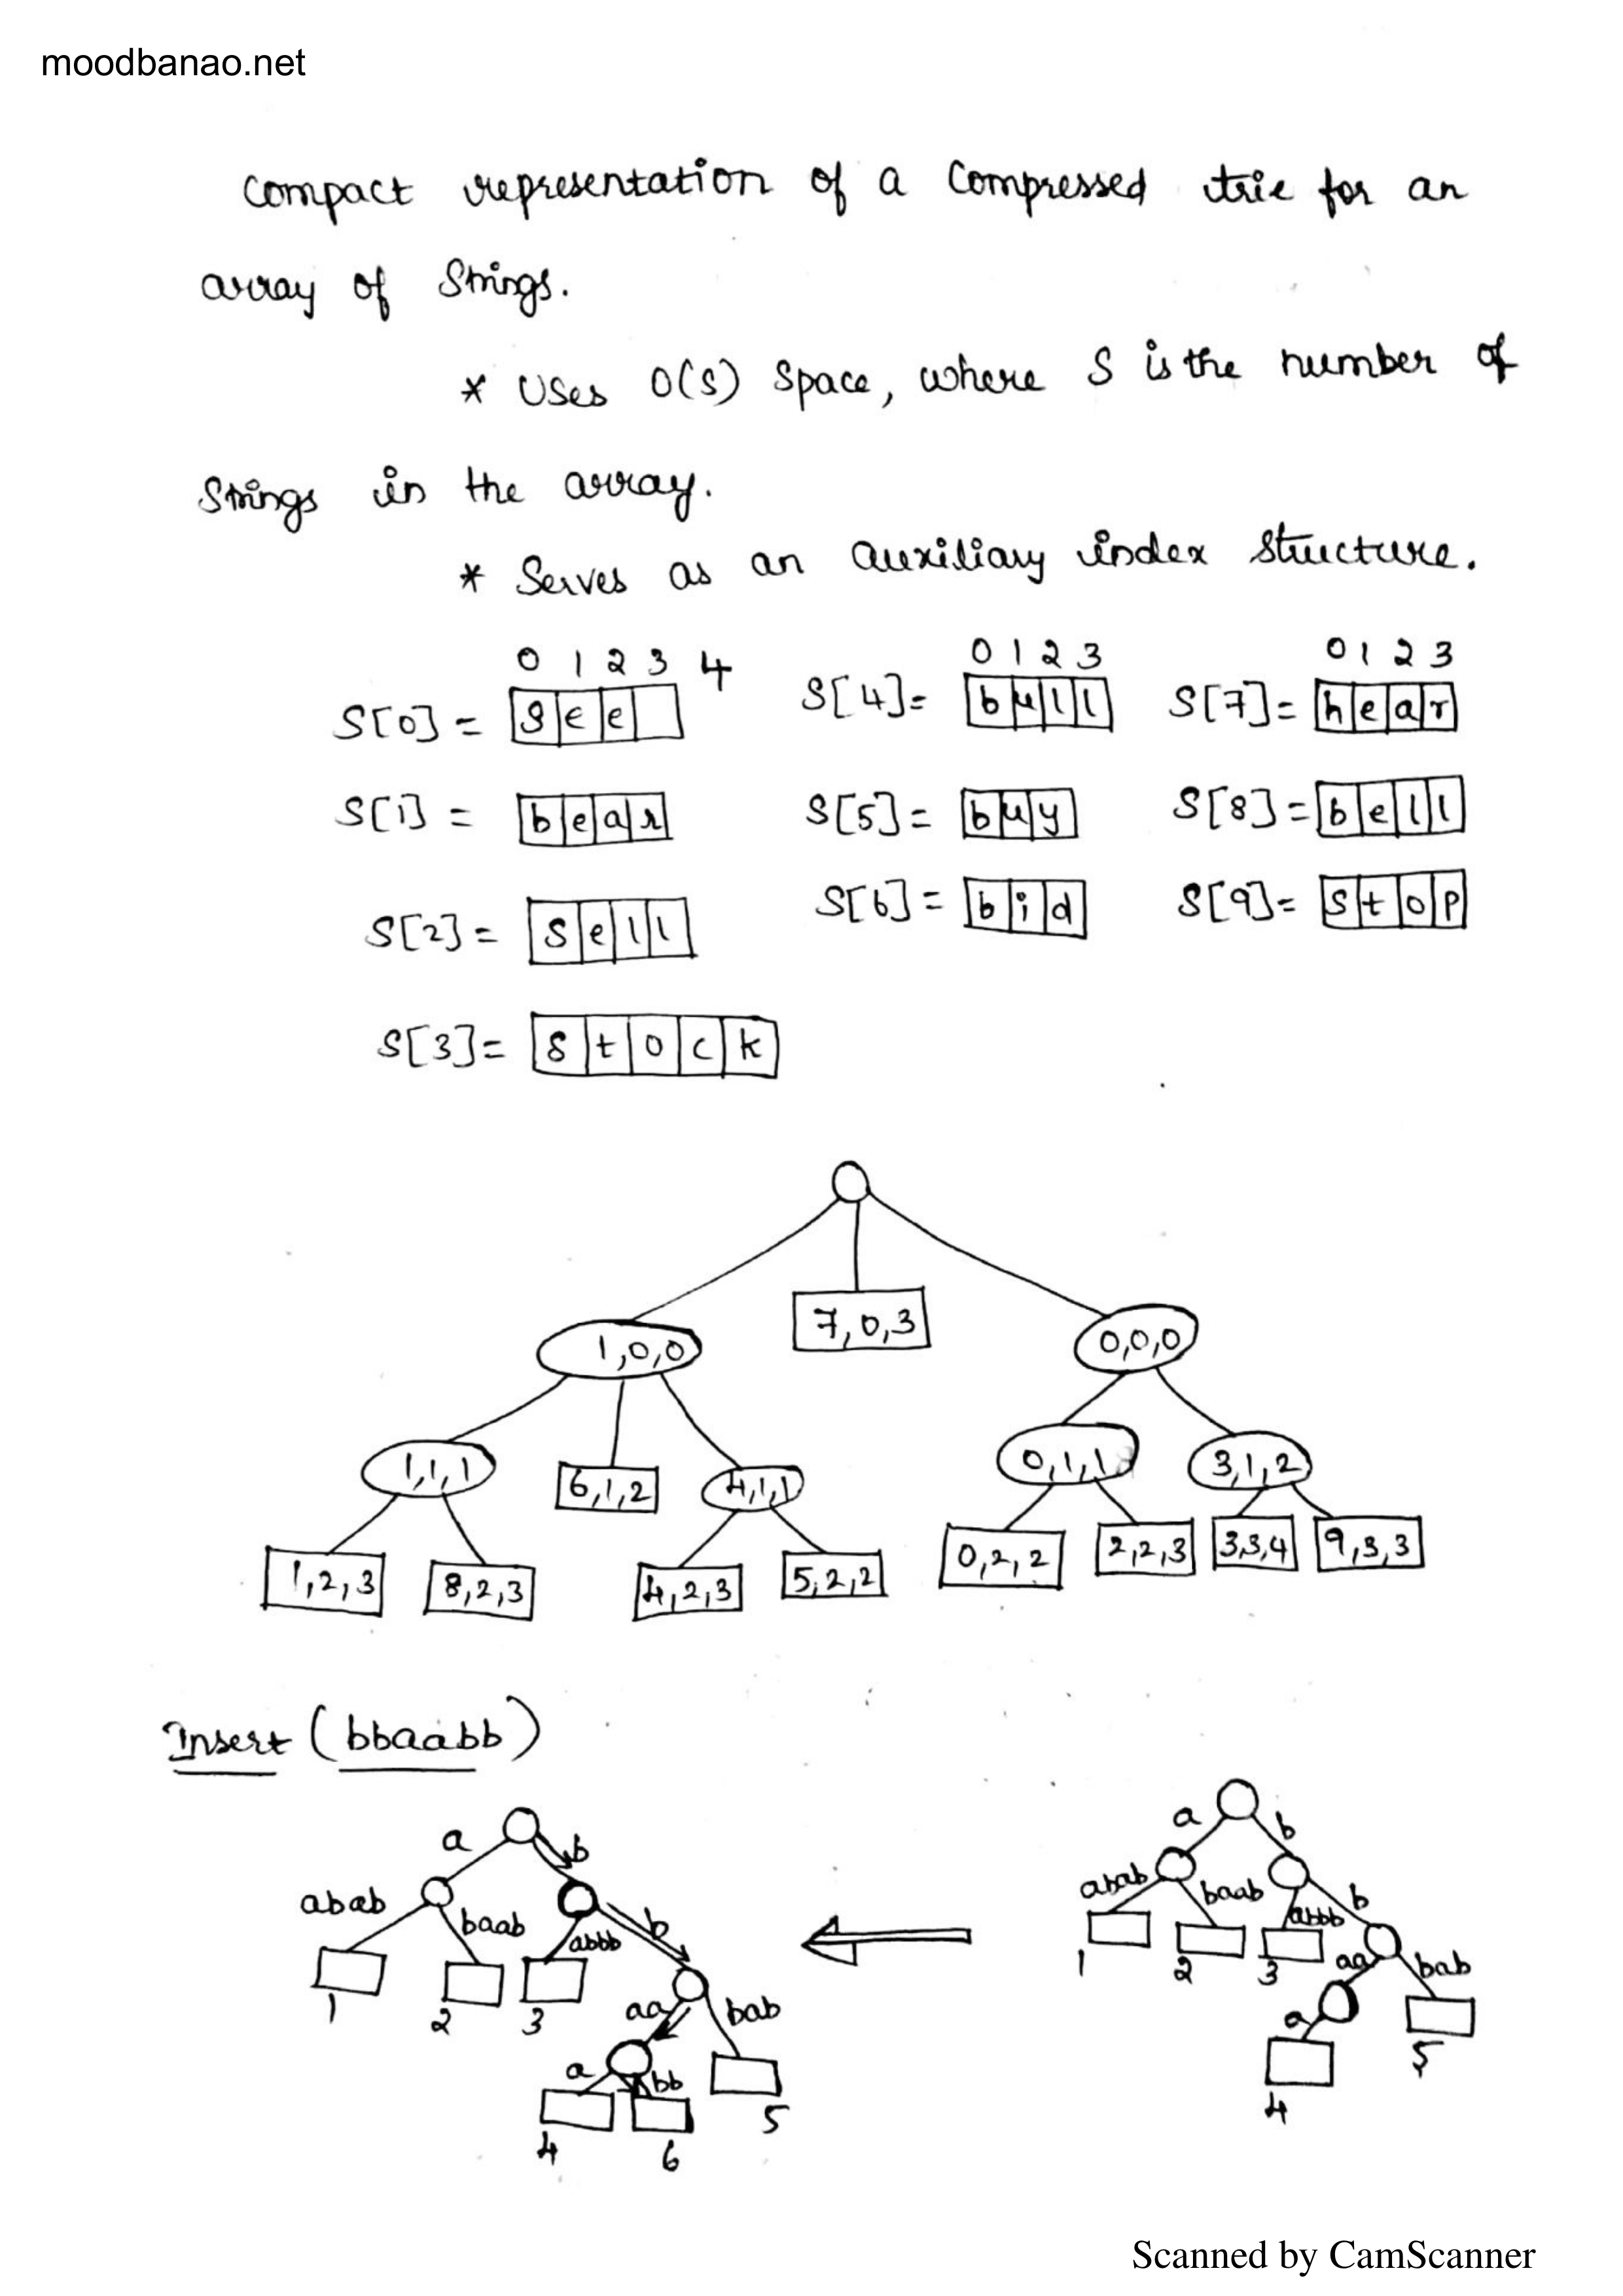 moodbanao.net
Compact representation of a Compressed trie for an
array of Strings.
* Uses O(S) Space, where S is the number of
Strings in the array.
* Serves as an auxiliary index structure.
0 1 2 3 4 0 1 2 3 0 1 2 3
S[0] = see S[4]= bull S[7]= hear
S[1] = bear S[5]= buy S[8]= bell
S[2]= sell S[6]= bid S[9]= stop
S[3]= stock
1,0,0 7,0,3 0,0,0
1,1,1 6,1,2 4,1,1 0,1,1 3,1,2
1,2,3 8,2,3 4,2,3 5,2,2 0,2,2 2,2,3 3,3,4 9,3,3
Insert (bbaabb)
a b
abab baab abbb b
1 2 3 aa bab
a bb 5
4 6
a b
abab baab abbb b
1 2 3 aa bab
a 5
4
Scanned by CamScanner